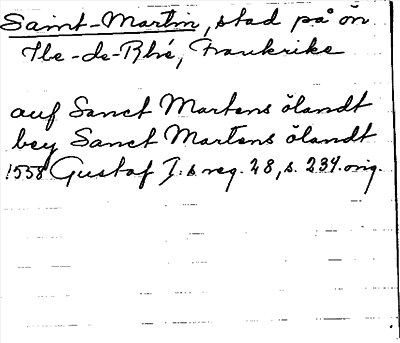 Saint-Martin, stad på ön
Ile-de-Rhé, Frankrike
auf Sanct Martens ölandt
bey Sanct Martens ölandt
1558 Gustaf I.s reg. 28, s. 234. orig.